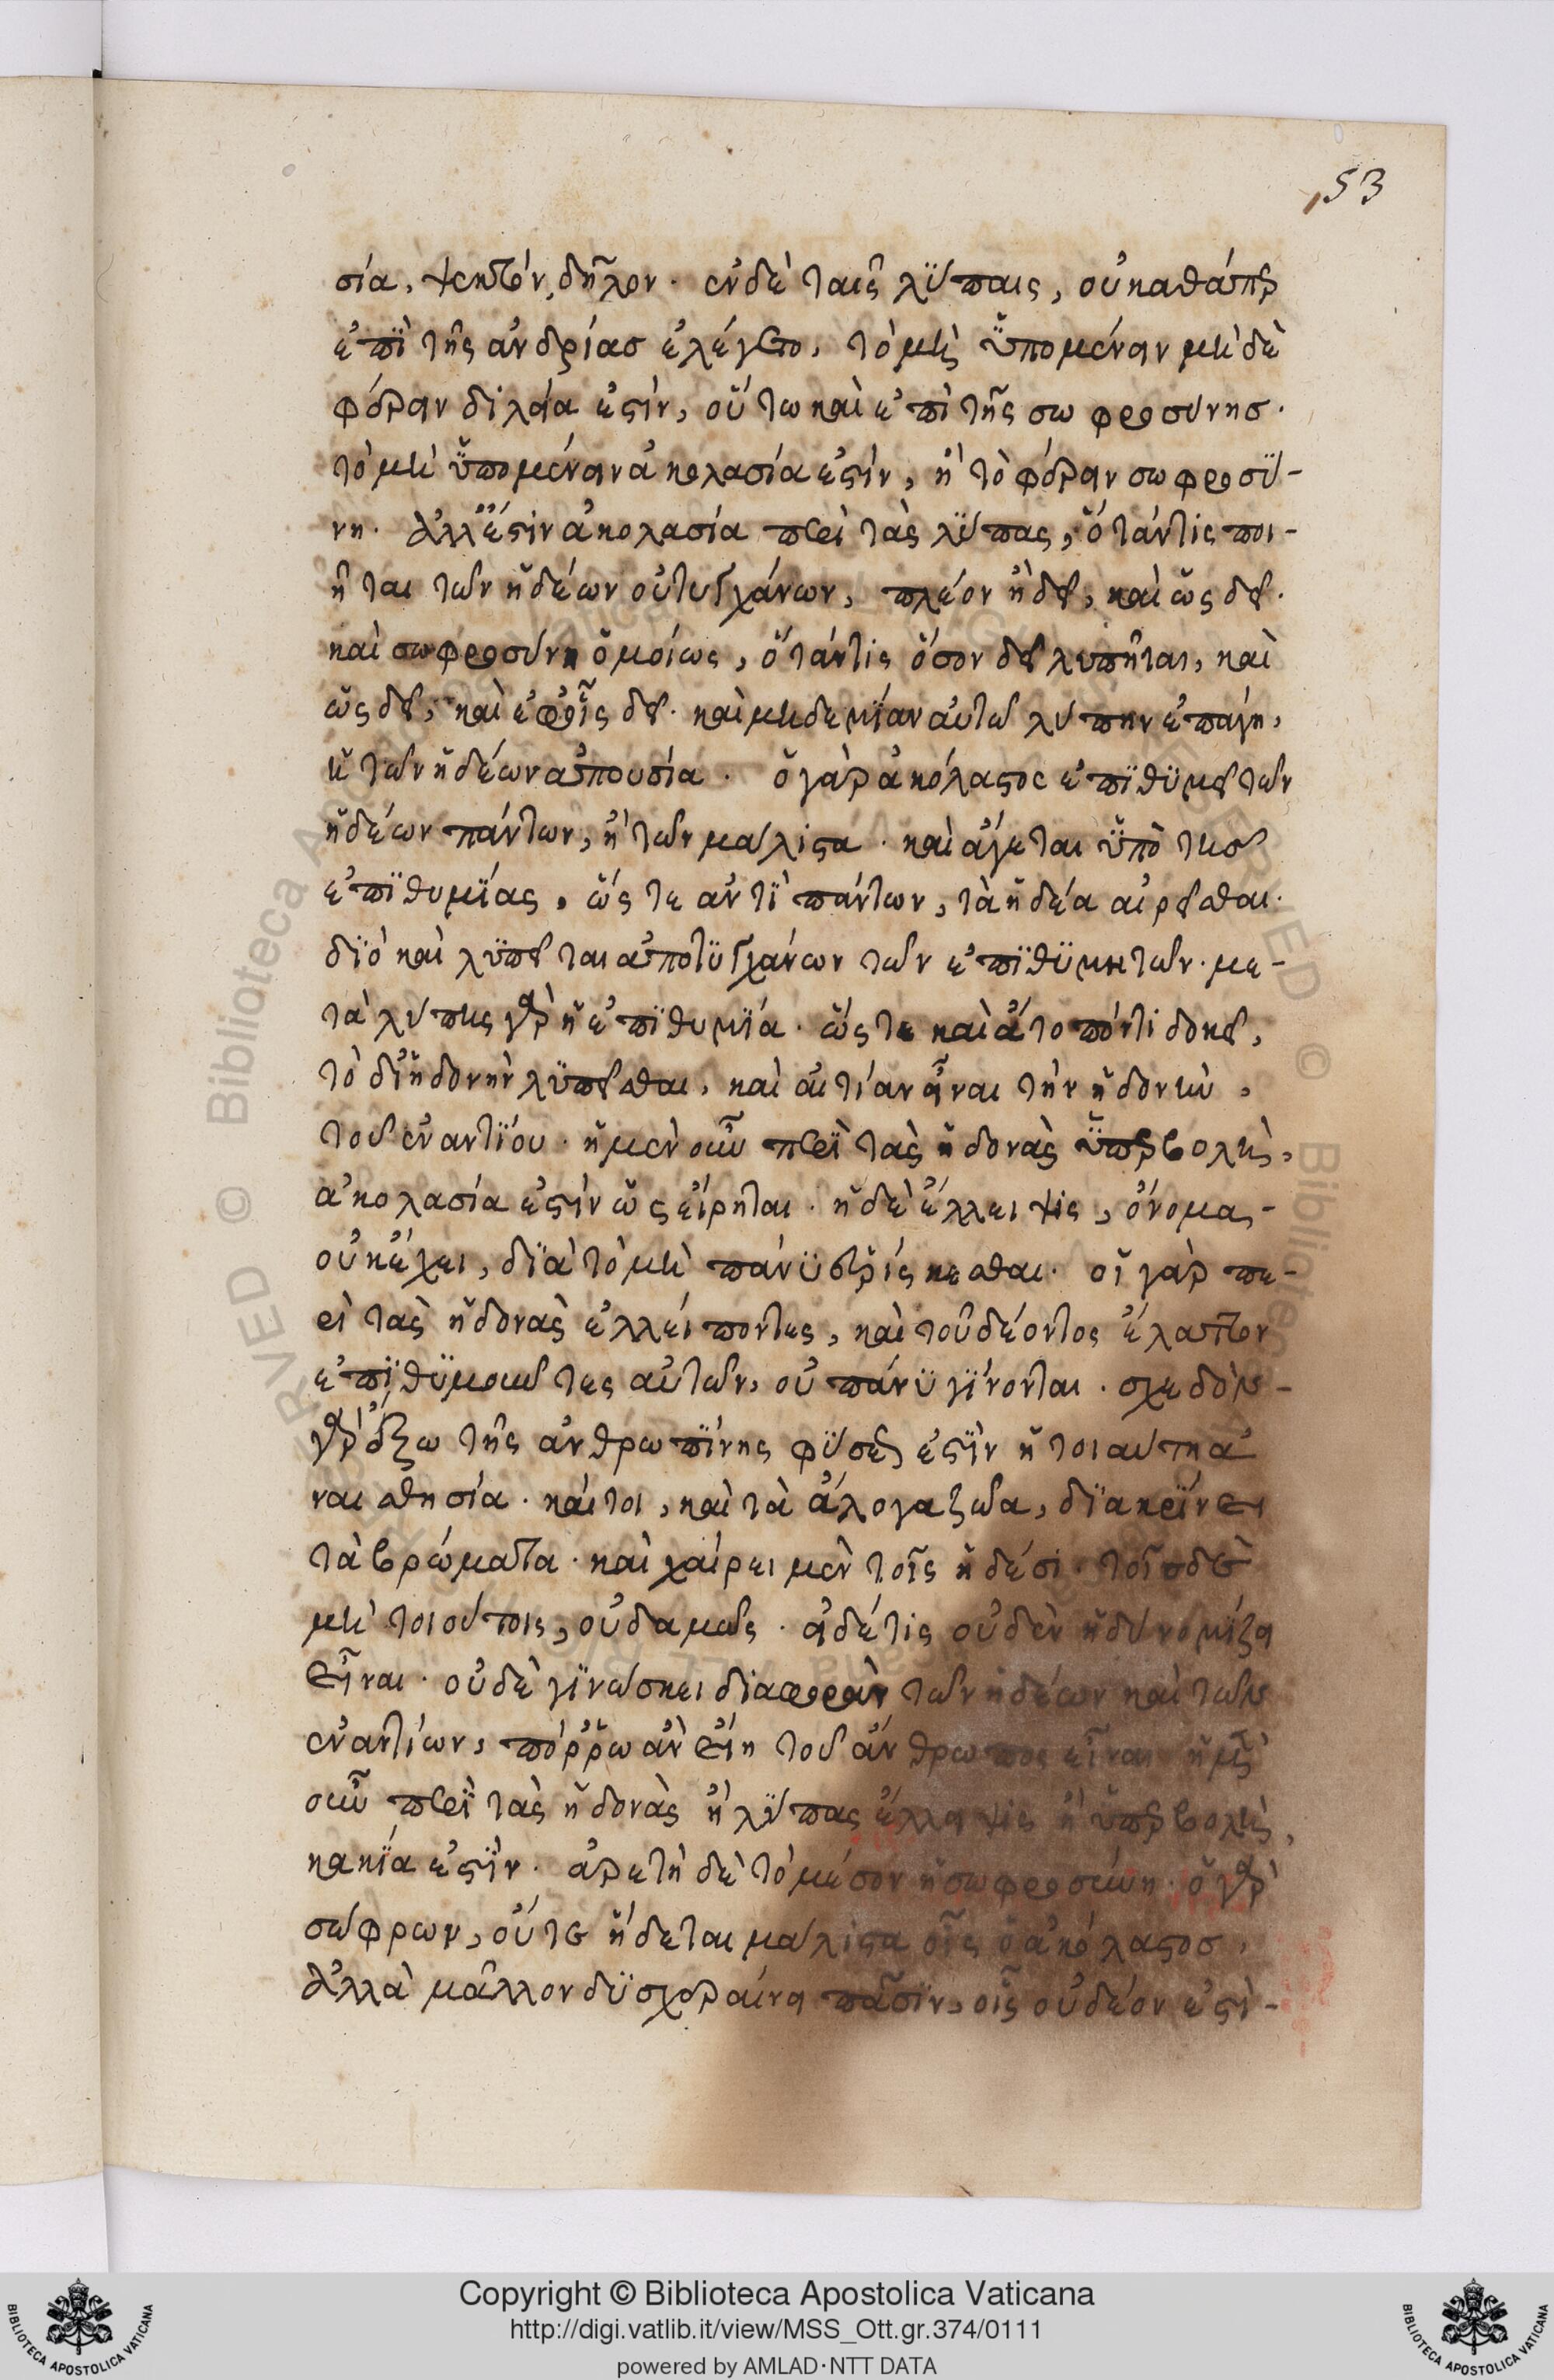 53
σία, ψεκτὸν, δῆλον. ἐν δὲ ταῖς λύπαις, οὐ καθάπερ
ἐπὶ τῆς ἀνδρίας ἐλέγετο, τὸ μὴ ὑπομένειν μὴ δὲ
φέρειν δειλία ἐστὶν, οὕτω καὶ ἐπὶ τῆς σωφροσύνης.
τὸ μὴ ὑπομένειν ἀκολασία ἐστὶν, ἢ τὸ φέρειν σωφροσύ-
νη. ἀλλ' ἔστιν ἀκολασία περὶ τὰς λύπας, ὅταν τις ποι-
ῆται τῶν ἡδέων οὐ τυγχάνων, πλέον ἢ δεῖ, καὶ ὡς δεῖ.
καὶ σωφροσύνη ὁμοίως, ὅταν τις ὅσον δεῖ λυπῆται, καὶ
ὡς δεῖ, καὶ ἐφ' οἷς δεῖ. καὶ μηδεμίαν αὐτῶ λύπην ἐπάγη,
ἡ τῶν ἡδέων ἀπουσία. ὁ γὰρ ἀκόλαστος ἐπιθυμεῖ τῶν
ἡδέων πάντων, ἢ τῶν μάλιστα. καὶ ἄγεται ὑπὸ τῆς
ἐπιθυμίας, ὥστε ἀντὶ πάντων, τὰ ἡδέα αἱρεῖσθαι.
διὸ καὶ λυπεῖται ἀποτυγχάνων τῶν ἐπιθυμητῶν. με-
τὰ λύπης γὰρ ἡ ἐπιθυμία. ὥστε καὶ ἄτοπόν τι δοκεῖ,
τὸ δι' ἡδονὴν λυπεῖσθαι, καὶ αἰτίαν εἶναι τὴν ἡδονὴν,
τοῦ ἐναντίου. ἡ μὲν οὖν περὶ τὰς ἡδονὰς ὑπερβολὴ,
ἀκολασία ἐστὶν ὡς εἴρηται. ἡ δὲ ἔλλειψις, ὄνομα-
οὐκ ἔχει, διὰ τὸ μὴ πάνυ εὑρίσκεσθαι. οἱ γὰρ πε-
ρὶ τὰς ἡδονὰς ἐλλείποντες, καὶ τοῦ δέοντος ἔλαττον
ἐπιθυμοῦντες αὐτῶν, οὐ πάνυ γίνονται. σχεδὸν-
γὰρ ἔξω τῆς ἀνθρωπίνης φύσεως ἐστὶν ἡ τοιαύτη ἀ
ναισθησία. καίτοι, καὶ τὰ ἄλογα ζῶα, διακρίνει
τὰ βρώματα. καὶ χαίρει μὲν τοῖς ἡδέσι. τοῖς δὲ
μὴ τοιούτοις, οὐδαμῶς. εἰ δέ τις οὐδὲν ἡδὺ νομίζει
εἶναι. οὐδὲ γινώσκει διαφορὰν τῶν ἡδέων καὶ τῶν
ἐναντίων, πόρρω ἂν εἴη τοῦ ἄνθρωπος εἶναι ἡ μὲν
οὖν περὶ τὰς ἡδονὰς ἢ λύπας ἔλλειψις ἢ ὑπερβολὴ,
κακία ἐστὶν. ἀρετὴ δὲ τὸ μέσον ἡ σωφροσύνη. ὁ γὰρ
σώφρων, οὔτε ἥδεται μάλιστα οἷς ὁ ἀκόλαστος,
ἀλλὰ μᾶλλον δυσχεραίνει πᾶσιν, οἷς οὐ δέον ἐστὶ-
Copyright © Biblioteca Apostolica Vaticana
http://digi.vatlib.it/view/MSS_Ott.gr.374/0111
powered by AMLAD·NTT DATA